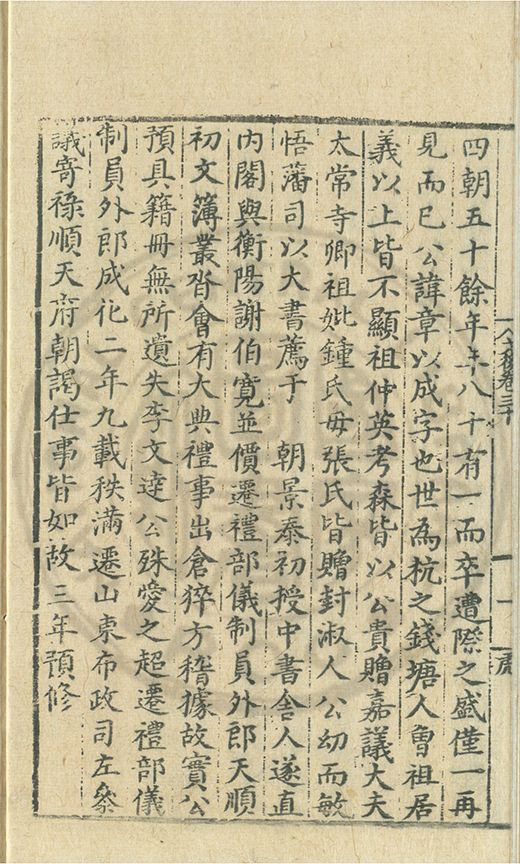 四朝五十餘年年八十有一而卒遭際之盛僅一再
見而已公諱章以成字也世為杭之錢塘人曾祖居
義以上皆不顯祖仲英考森皆以公貴贈嘉議大夫
太常寺卿祖妣鍾氏母張氏皆贈封淑人公幼而敏
悟藩司以大書薦于 朝景泰初授中書舍人遂直
內閣與衡陽謝伯寬並價遷禮部儀制員外郎天順
初文簿叢沓會有大典禮事出倉猝方稽據故實公
預具籍冊無所遺失李文達公殊愛之超遷禮部儀
制員外郎成化二年九載秩滿遷山東布政司左叅
議寄祿順天府朝謁仕事皆如故三年預修
卷三十
一